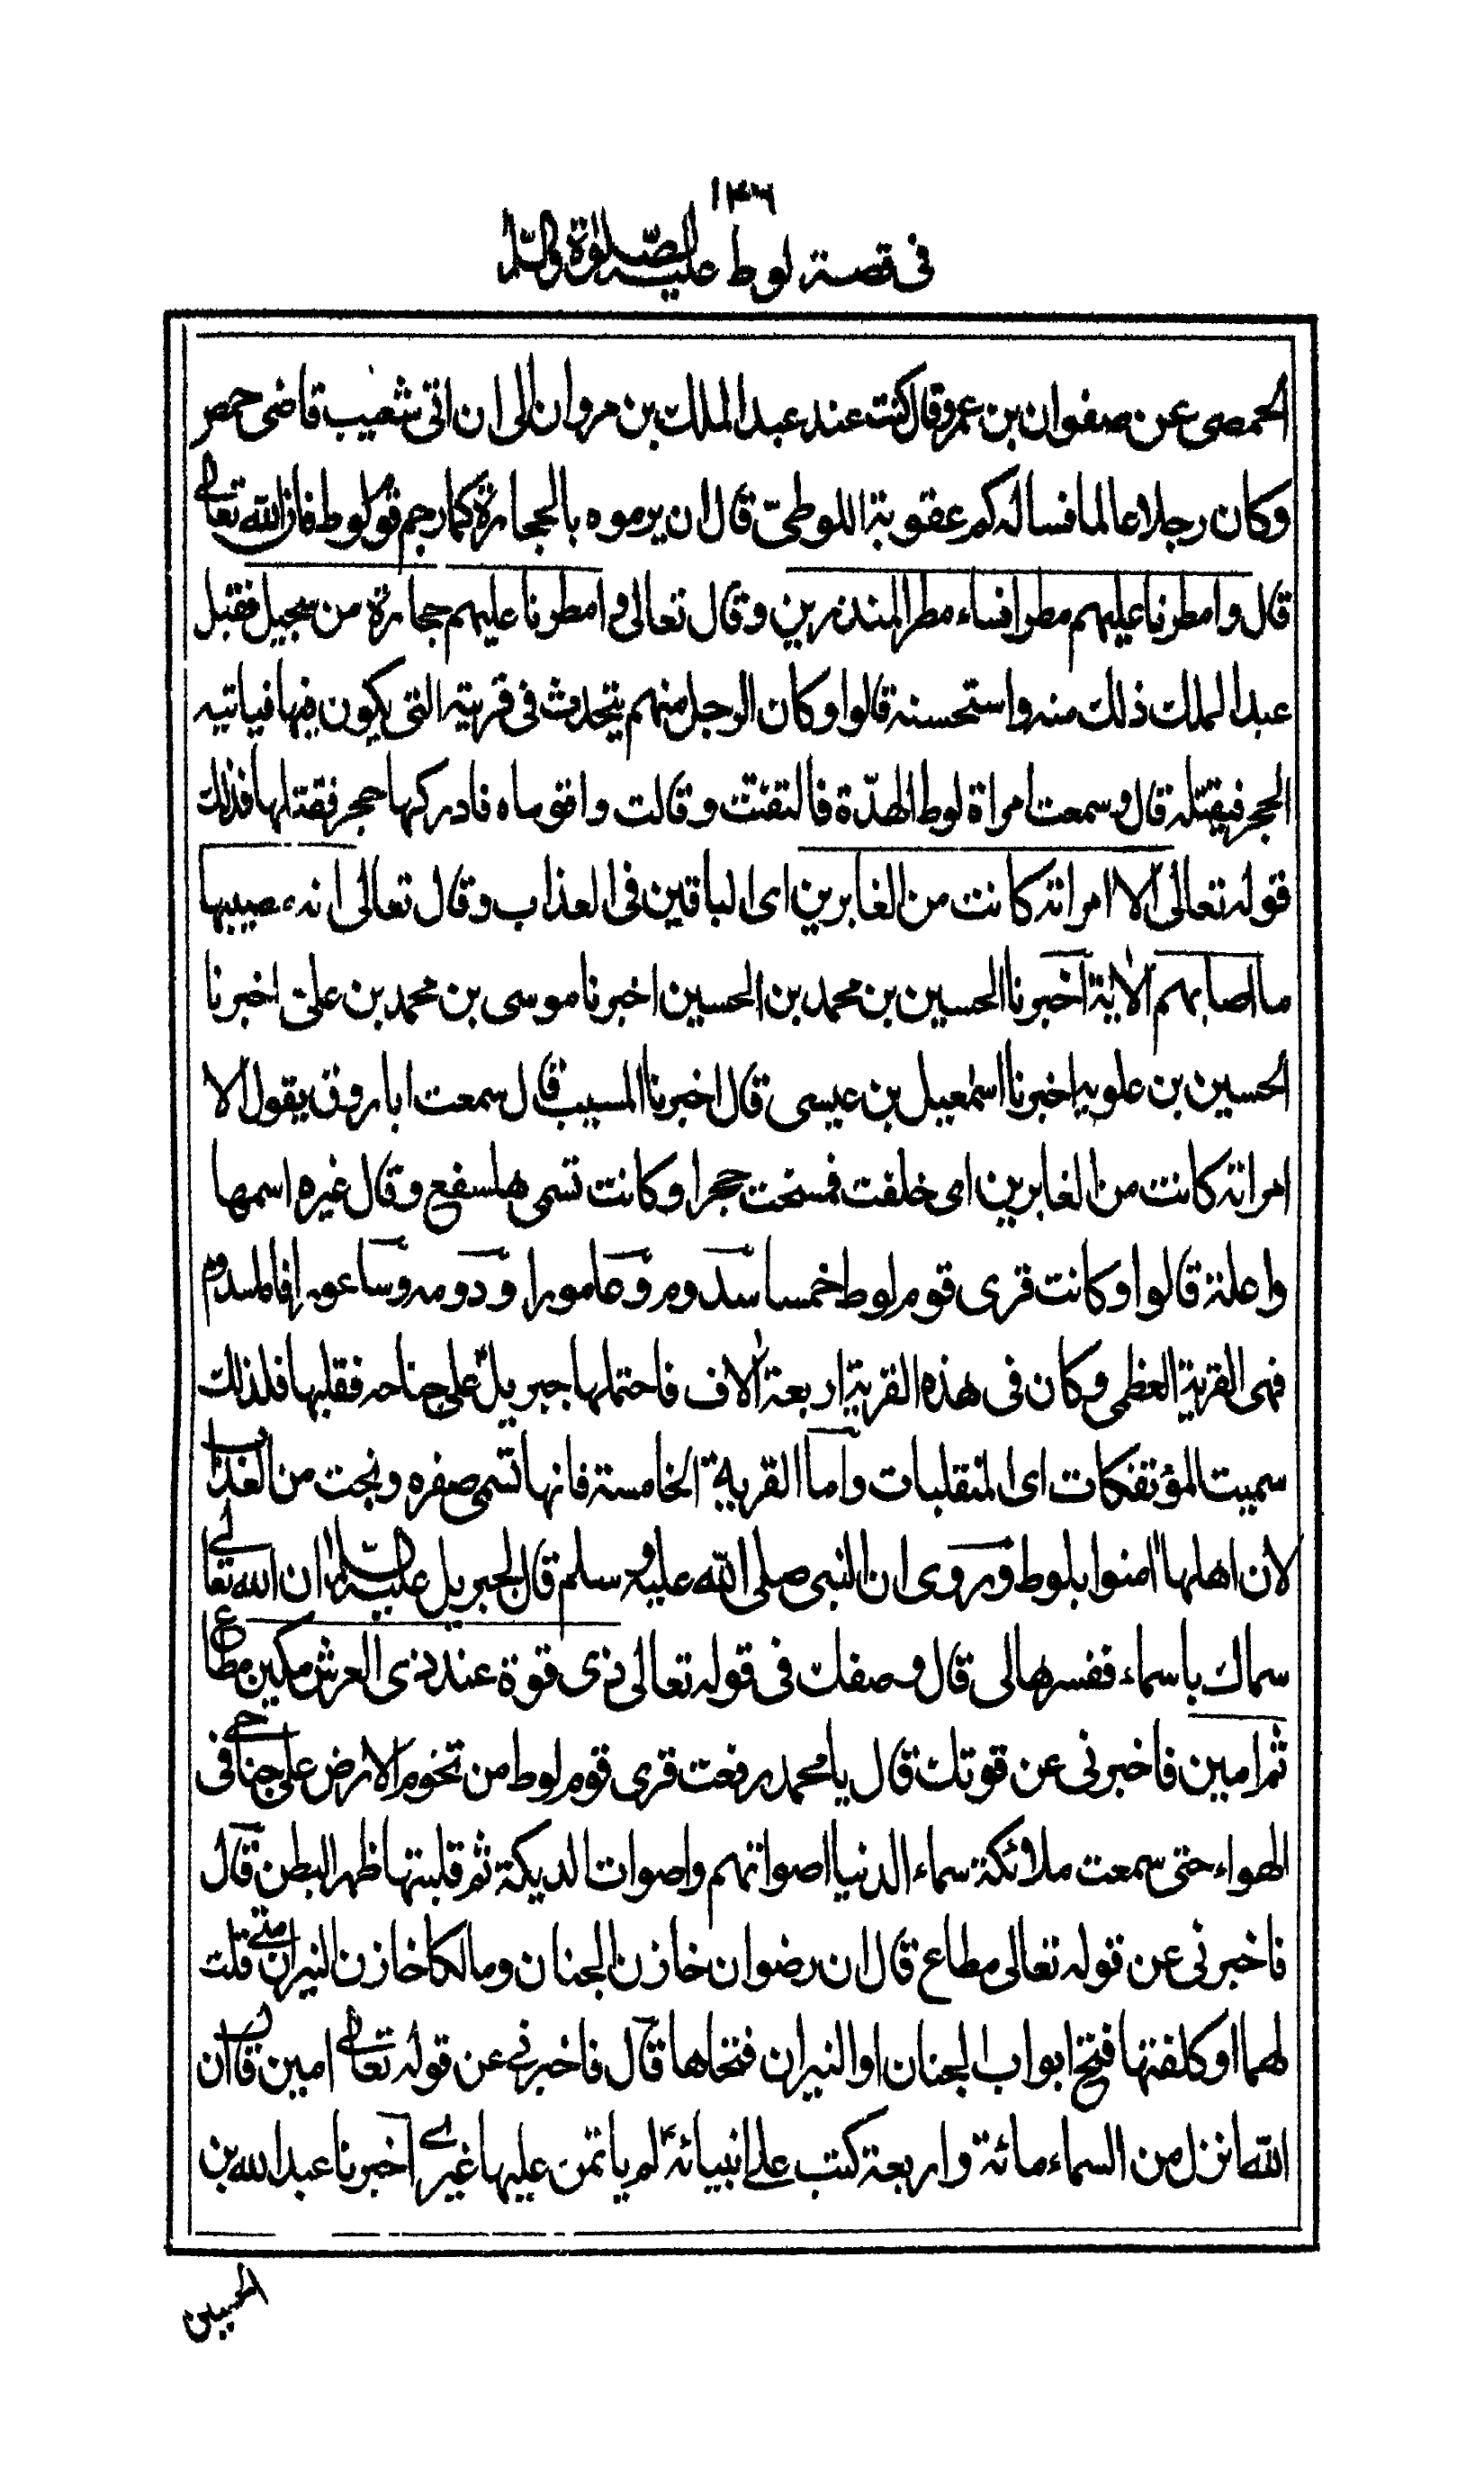 ١٣٦
فى قصة لوط عليه الصلوة والسلام
الحمصى عن صفوان بن عمرو قال كنت عند عبد الملك بن مروان الى ان اتى شعيب قاضى حمص
وكان رجلا عالما فساله كم عقوبة اللوطىّ قال ان يرموه بالحجارة كما رجم قوم لوط فان الله تعالى
قال وامطرنا عليهم مطرا فساء مطر المنذرين وقال تعالى وامطرنا عليهم حجارة من سجيل فقبل
عبد الملك ذلك منه واستحسنه قالوا وكان الرجل منهم يتحدث فى قريته التى يكون فيها فياتيه
الحجر فيقتله قال وسمعت امراة لوط الهدّة فالتفتت وقالت واقوماه فادركها حجر فقتلها فذلك
قوله تعالى الا امراته كانت من الغابرين اى الباقين فى العذاب وقال تعالى انه مصيبها
ما اصابهم الاية اخبرنا الحسين بن محمد بن الحسين اخبرنا موسى بن محمد بن على اخبرنا
الحسين بن علويه اخبرنا اسمٰعيل بن عيسى قال اخبرنا المسيب قال سمعت ابا روق يقول الا
امراته كانت من الغابرين اى خلفت فمسخت حجرا وكانت تسمى هلسفع وقال غيره اسمها
واعلة قالوا وكانت قرى قوم لوط خمسا سدوم وعامورا ودومه وساعوبه فاما سدوم
فهى القرية العظمى وكان فى هذه القرية اربعة الاف فاحتملها جبريلؑ على جناحه فقلبها فلذلك
سميت المؤتفكات اى المنقلبات واما القرية الخامسة فانها تسمى صفره ونجت من العذاب
لان اهلها امنوا بلوط وروى ان النبى صلى الله عليه وسلم قال لجبريل عليه السلام ان الله تعالى
سماك باسماء ففسرها لى قال وصفك فى قوله تعالى ذى قوة عند ذى العرش مكين مطاع
ثم امين فاخبرنى عن قوتك قال يا محمد رفعت قرى قوم لوط من تخوم الارض على جناحى فى
الهواء حتى سمعت ملائكة سماء الدنيا اصواتهم واصوات الديكة ثم قلبتها ظهر البطن قال
فاخبرنى عن قوله تعالى مطاع قال ان رضوان خازن الجنان ومالكا خازن النيران متى قلت
لهما او كلفتها فتح ابواب الجنان او النيران فتحاها قال فاخبرنى عن قوله تعالى امين قال ان
الله انزل من السماء مائة واربعة كتب على انبيائه لم ياتمن عليها غيرى اخبرنا عبد الله بن
الحسين